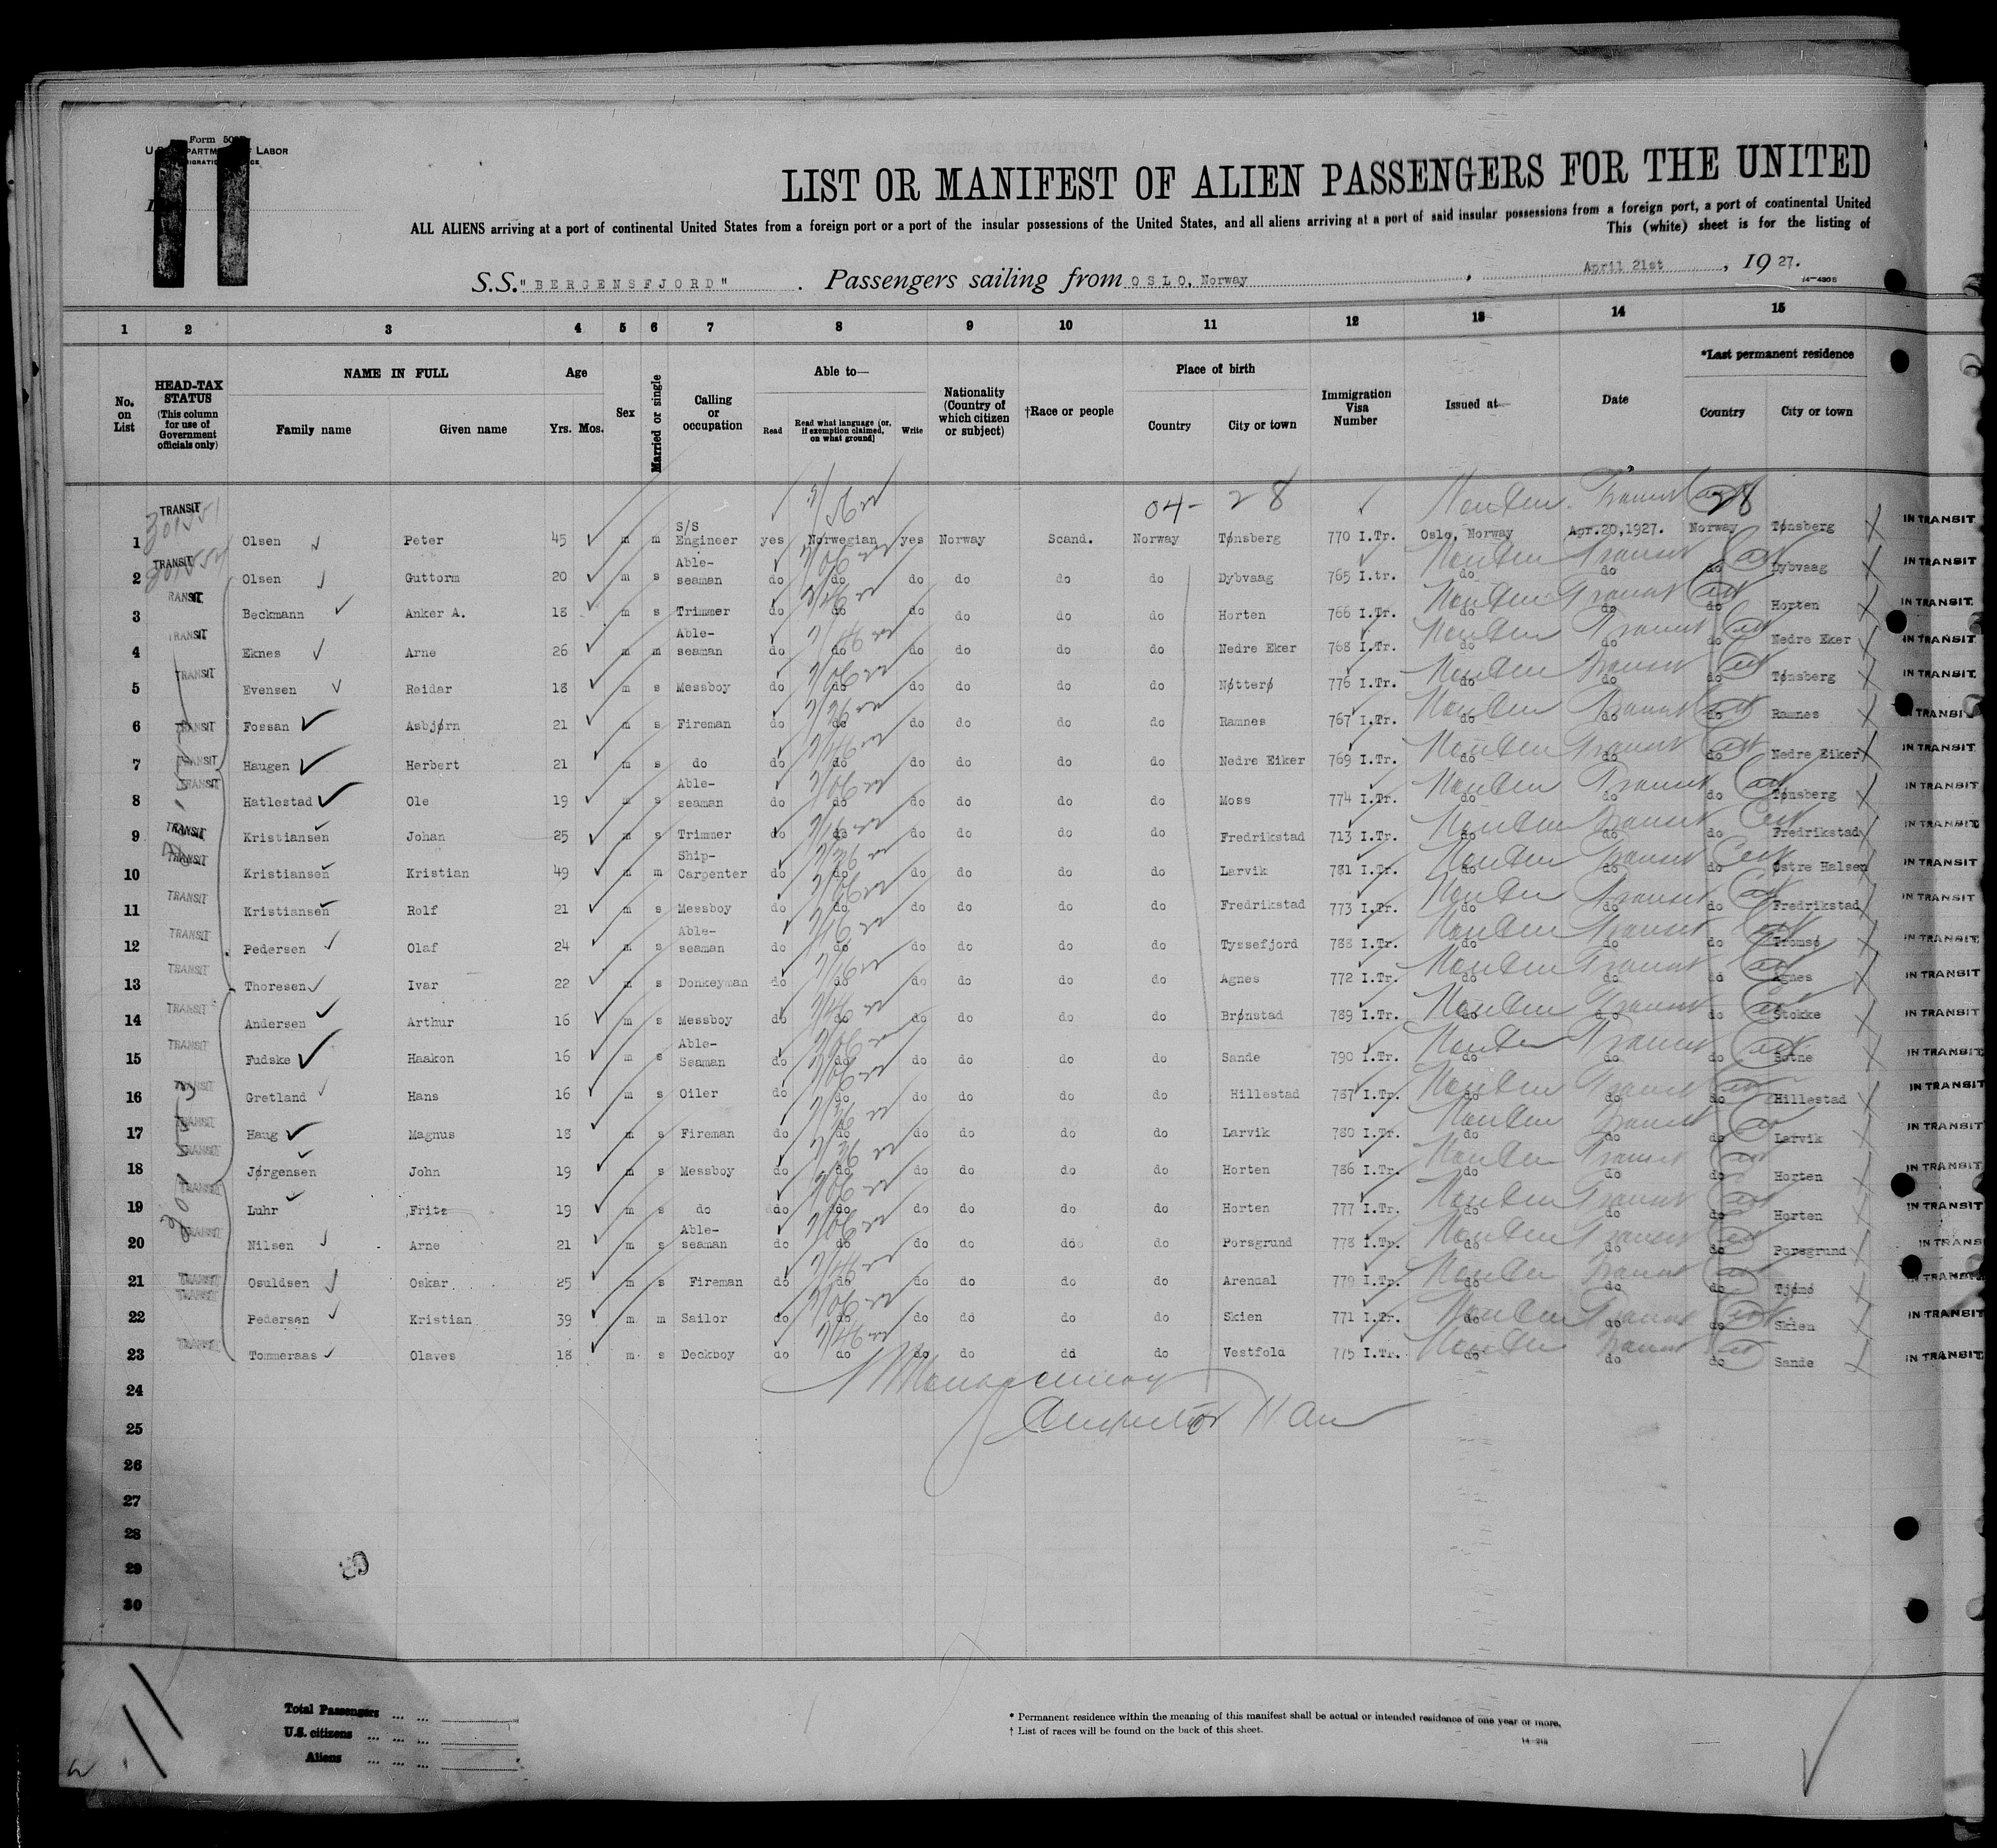 Form 500
U.S. DEPARTMENT OF LABOR
IMMIGRATION SERVICE
11
LIST OR MANIFEST OF ALIEN PASSENGERS FOR THE UNITED
ALL ALIENS arriving at a port of continental United States from a foreign port or a port of the insular possessions of the United States, and all aliens arriving at a port of said insular possessions from a foreign port, a port of continental United
This (white) sheet is for the listing of
S.S. "BERGENSFJORD" . Passengers sailing from OSLO, Norway , April 21st , 19 27.
14-4805
1 2 3 4 5 6 7 8 9 10 11 12 13 14 15
No. on List
HEAD-TAX STATUS (This column for use of Government officials only)
NAME IN FULL
Family name Given name
Age
Yrs. Mos.
Sex
Married or single
Calling or occupation
Able to—
Read Read what language (or, if exemption claimed, on what ground) Write
Nationality (Country of which citizen or subject)
†Race or people
Place of birth
Country City or town
Immigration Visa Number
Issued at—
Date
*Last permanent residence
Country City or town
04- 28
1 TRANSIT Olsen Peter 45 m m S/S Engineer yes Norwegian yes Norway Scand. Norway Tønsberg 770 I.Tr. Oslo, Norway Apr.20,1927. Norway Tønsberg IN TRANSIT
2 TRANSIT Olsen Guttorm 20 m s Able-seaman do do do do do do Dybvaag 765 I.tr. do do do Dybvaag IN TRANSIT
3 TRANSIT Beckmann Anker A. 18 m s Trimmer do do do do do do Horten 766 I.Tr. do do do Horten IN TRANSIT
4 TRANSIT Eknes Arne 26 m m Able-seaman do do do do do do Nedre Eker 768 I.Tr. do do do Nedre Eker IN TRANSIT
5 TRANSIT Evensen Reidar 18 m s Messboy do do do do do do Nøtterø 776 I.Tr. do do do Tønsberg IN TRANSIT
6 TRANSIT Fossan Asbjørn 21 m s Fireman do do do do do do Ramnes 767 I.Tr. do do do Ramnes IN TRANSIT
7 TRANSIT Haugen Herbert 21 m s do do do do do do do Nedre Eiker 769 I.Tr. do do do Nedre Eiker IN TRANSIT
8 TRANSIT Hatlestad Ole 19 m s Able-seaman do do do do do do Moss 774 I.Tr. do do do Tønsberg IN TRANSIT
9 TRANSIT Kristiansen Johan 25 m s Trimmer do do do do do do Fredrikstad 713 I.Tr. do do do Fredrikstad IN TRANSIT
10 TRANSIT Kristiansen Kristian 49 m m Ship-Carpenter do do do do do do Larvik 781 I.Tr. do do do Østre Halsen IN TRANSIT
11 TRANSIT Kristiansen Rolf 21 m s Messboy do do do do do do Fredrikstad 773 I.Tr. do do do Fredrikstad IN TRANSIT
12 TRANSIT Pedersen Olaf 24 m s Able-seaman do do do do do do Tyssefjord 788 I.Tr. do do do Tromsø IN TRANSIT
13 TRANSIT Thoresen Ivar 22 m s Donkeyman do do do do do do Agnes 772 I.Tr. do do do Agnes IN TRANSIT
14 TRANSIT Andersen Arthur 16 m s Messboy do do do do do do Brønstad 789 I.Tr. do do do Stokke IN TRANSIT
15 TRANSIT Fudske Haakon 16 m s Able-Seaman do do do do do do Sande 790 I.Tr. do do do IN TRANSIT
16 TRANSIT Gretland Hans 16 m s Oiler do do do do do do Hillestad 787 I.Tr. do do do Hillestad IN TRANSIT
17 TRANSIT Haug Magnus 18 m s Fireman do do do do do do Larvik 780 I.Tr. do do do Larvik IN TRANSIT
18 TRANSIT Jørgensen John 19 m s Messboy do do do do do do Horten 786 I.Tr. do do do Horten IN TRANSIT
19 TRANSIT Luhr Fritz 19 m s do do do do do do do Horten 777 I.Tr. do do do Horten IN TRANSIT
20 TRANSIT Nilsen Arne 21 m s Able-seaman do do do do do do Porsgrund 778 I.Tr. do do do Porsgrund IN TRANSIT
21 TRANSIT Osuldsen Oskar 25 m s Fireman do do do do do do Arendal 779 I.Tr. do do do Tjømø IN TRANSIT
22 TRANSIT Pedersen Kristian 39 m m Sailor do do do do do do Skien 771 I.Tr. do do do Skien IN TRANSIT
23 TRANSIT Tommeraas Olaves 18 m s Deckboy do do do do dd do Vestfold 775 I.Tr. do do do Sande IN TRANSIT
24
25
26
27
28
29
30
Total Passengers ... ...
U.S. citizens ... ... ...
Aliens ... ... ...
* Permanent residence within the meaning of this manifest shall be actual or intended residence of one year or more.
† List of races will be found on the back of this sheet.
14-218